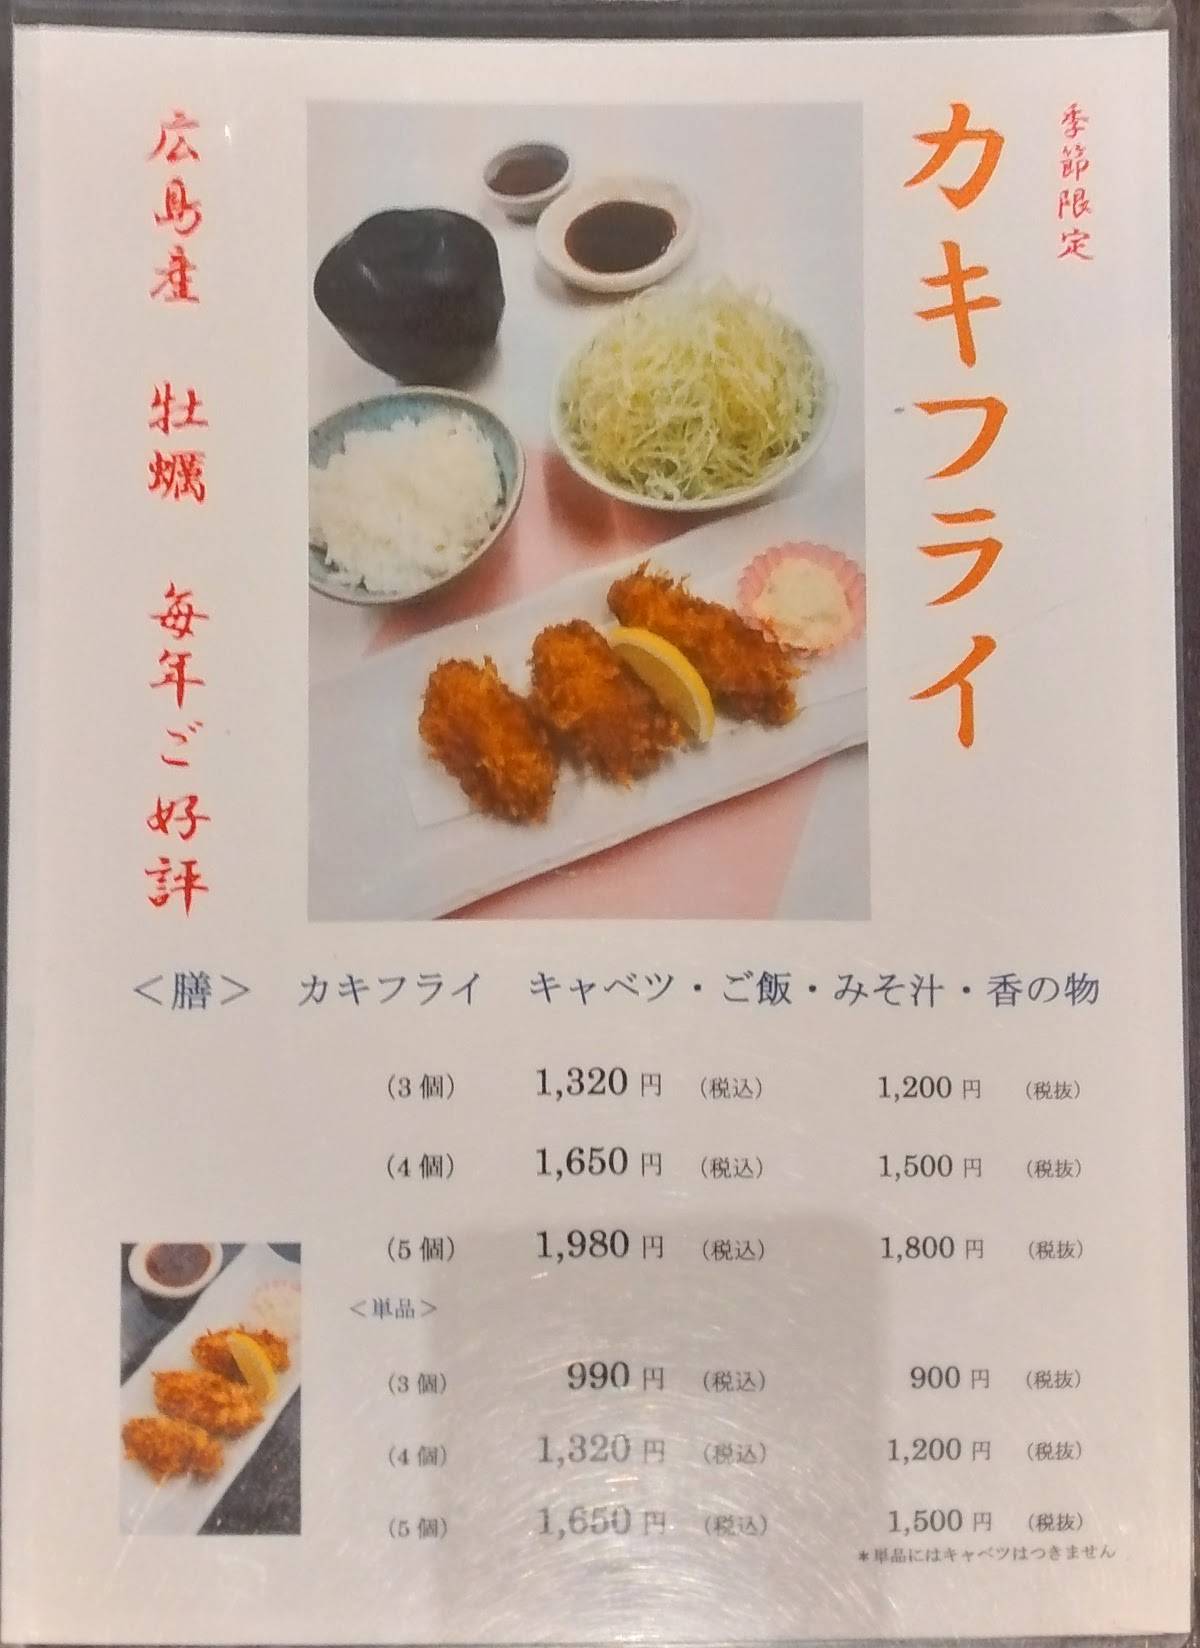 季節限定
カキフライ
広島産 牡蠣 毎年ご好評
＜膳＞ カキフライ キャベツ・ご飯・みそ汁・香の物
（3個） 1,320円 （税込） 1,200円 （税抜）
（4個） 1,650円 （税込） 1,500円 （税抜）
（5個） 1,980円 （税込） 1,800円 （税抜）
＜単品＞
（3個） 990円 （税込） 900円 （税抜）
（4個） 1,320円 （税込） 1,200円 （税抜）
（5個） 1,650円 （税込） 1,500円 （税抜）
＊単品にはキャベツはつきません